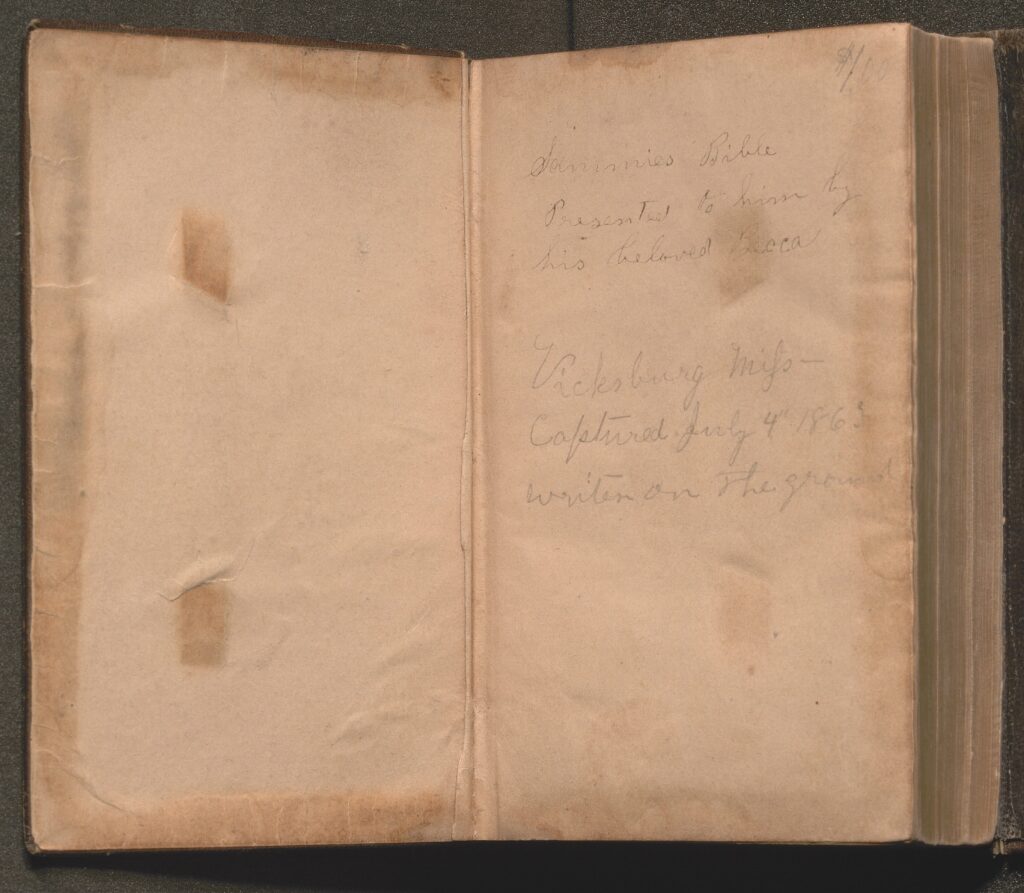 $1.00
Sammies Bible
Presented to him by
his beloved Becca
Vicksburg Miss—
Captured July 4" 1863
writen on the ground